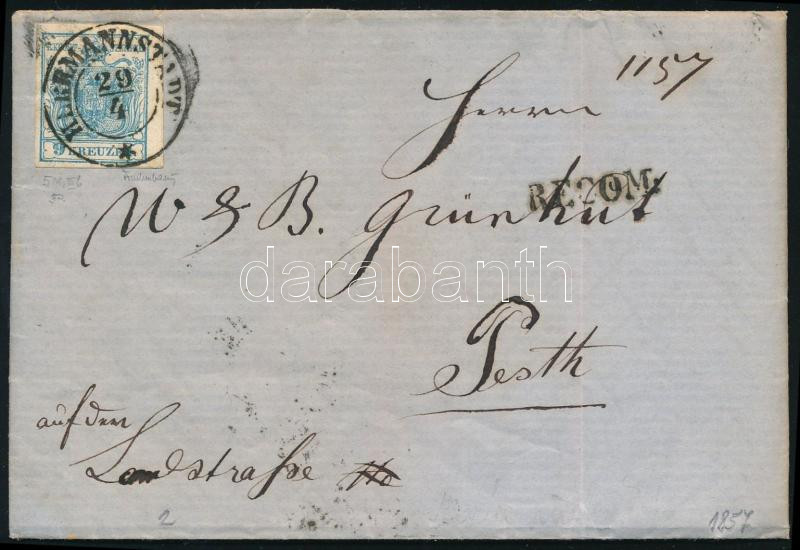 HERRMANNSTADT
29
4
9 KREUZER
1157
Herrn
RECOM.
W & B. Grünhut
darabanth
Pesth
auf der
Landstraße
2
1857